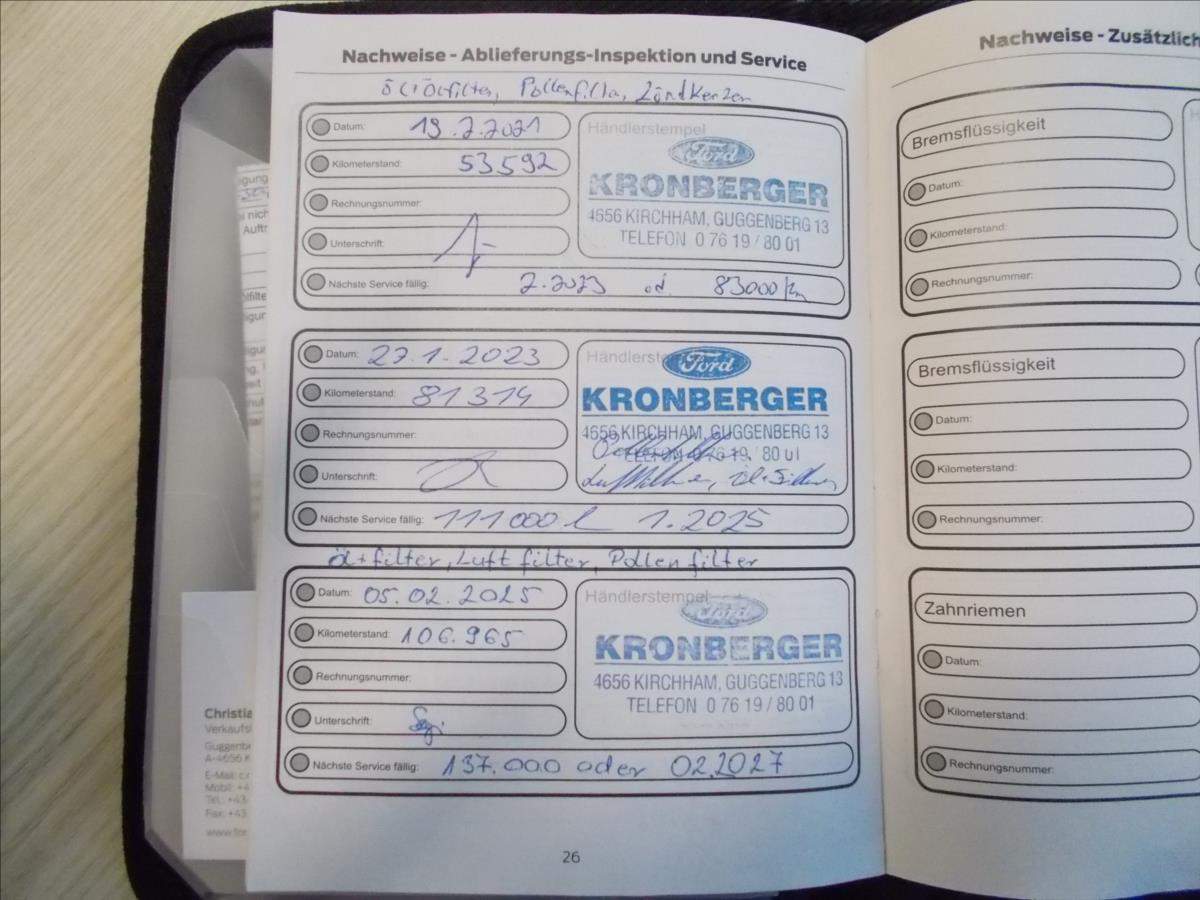 Nachweise - Ablieferungs-Inspektion und Service
Öl+Ölfilter, Pollenfilter, Zündkerzen
Datum: 19.2.2021
Kilometerstand: 53592
Rechnungsnummer:
Unterschrift:
Nächste Service fällig: 2.2023 od. 83000 km
Händlerstempel
Ford
KRONBERGER
4656 KIRCHHAM, GUGGENBERG 13
TELEFON 0 76 19 / 80 01
Datum: 27.1.2023
Kilometerstand: 81314
Rechnungsnummer:
Unterschrift:
Nächste Service fällig: 111000 1.2025
Händlerst
Ford
KRONBERGER
4656 KIRCHHAM, GUGGENBERG 13
TELEFON 0 76 19 / 80 01
öl+filter, Luftfilter, Pollenfilter
Datum: 05.02.2025
Kilometerstand: 106.965
Rechnungsnummer:
Unterschrift:
Nächste Service fällig: 137.000 oder 02.2027
Händlerstempel
Ford
KRONBERGER
4656 KIRCHHAM, GUGGENBERG 13
TELEFON 0 76 19 / 80 01
26
Nachweise - Zusätzlich
Bremsflüssigkeit
Datum:
Kilometerstand:
Rechnungsnummer:
Bremsflüssigkeit
Datum:
Kilometerstand:
Rechnungsnummer:
Zahnriemen
Datum:
Kilometerstand:
Rechnungsnummer:
Christia
Verkaufs
Guggenb
A-4656 K
E-Mail: c.r
Mobil: +4
Tel.: +43
Fax: +43
www.for